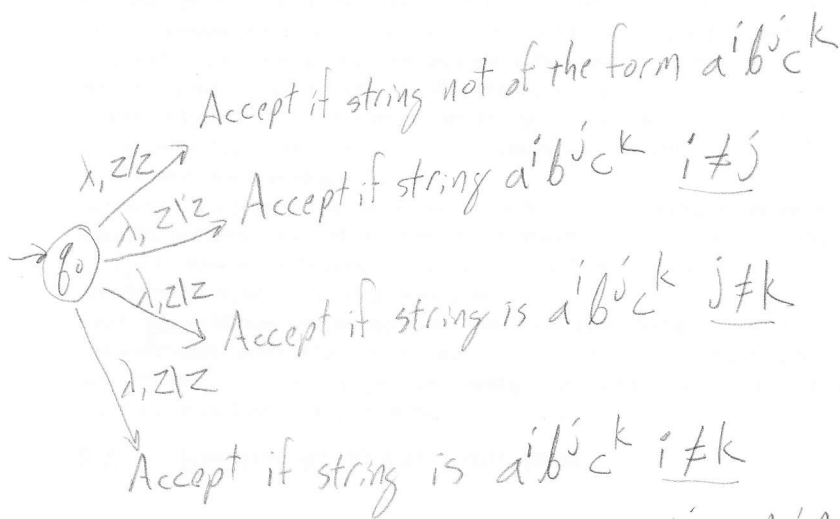 Accept if string not of the form aⁱbʲcᵏ
λ, z|z
Accept if string aⁱbʲcᵏ i ≠ j
λ, z|z
q₀
λ, z|z
Accept if string is aⁱbʲcᵏ j ≠ k
λ, z|z
Accept if string is aⁱbʲcᵏ i ≠ k